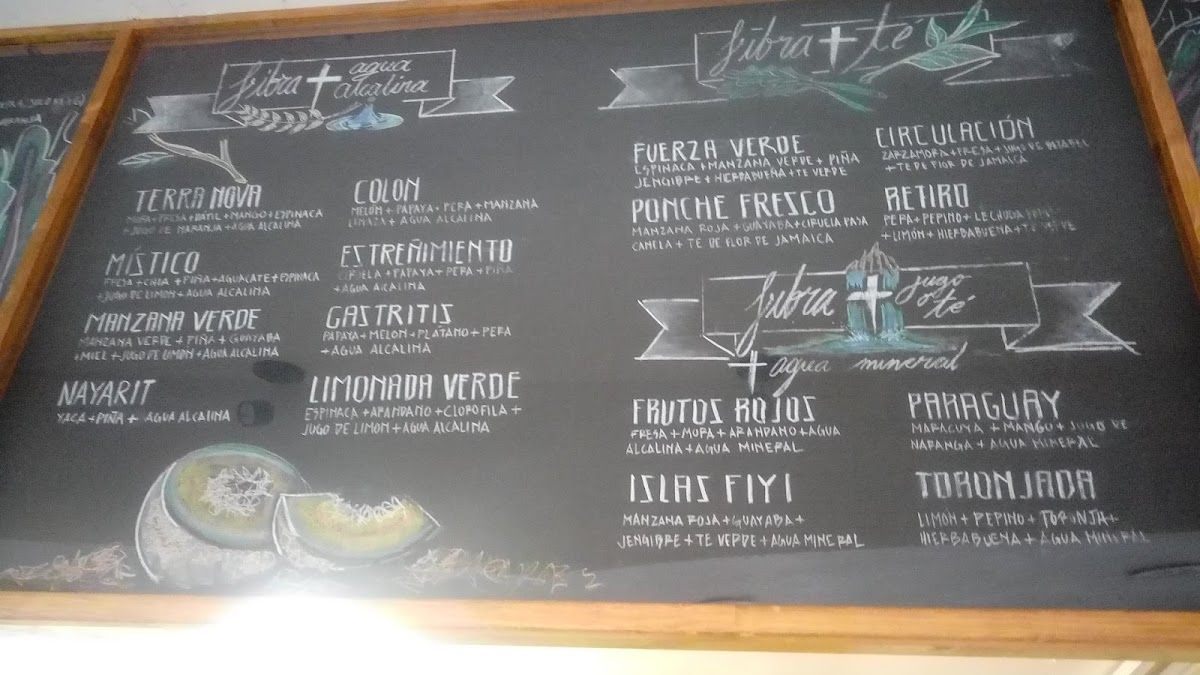 fibra + agua
alcalina
TERRA NOVA
MORA+FRESA+DATIL+MANGO+ESPINACA
+JUGO DE NARANJA+AGUA ALCALINA
MÍSTICO
FRESA+CHIA+PIÑA+AGUACATE+ESPINACA
+JUGO DE LIMON+AGUA ALCALINA
MANZANA VERDE
MANZANA VERDE+PIÑA+GUAYABA
+MIEL+JUGO DE LIMON+AGUA ALCALINA
NAYARIT
YACA+PIÑA+ AGUA ALCALINA
COLON
MELON+PAPAYA+PERA+MANZANA
LINAZA+AGUA ALCALINA
ESTREÑIMIENTO
CIRUELA+PAPAYA+PERA+PIÑA
+AGUA ALCALINA
GASTRITIS
PAPAYA+MELON+PLATANO+PERA
+AGUA ALCALINA
LIMONADA VERDE
ESPINACA+ARANDANO+CLOROFILA+
JUGO DE LIMON+AGUA ALCALINA
fibra + té
FUERZA VERDE
ESPINACA+MANZANA VERDE+PIÑA
JENGIBRE+HIERBABUEÑA+TE VERDE
PONCHE FRESCO
MANZANA ROJA+GUAYABA+CIRUELA PASA
CANELA+TE DE FLOR DE JAMAICA
CIRCULACIÓN
ZARZAMORA+FRESA+JUGO DE
+TE DE FLOR DE JAMAICA
RETIRO
PERA+PEPINO+LECHUGA
+LIMÓN+HIERBABUENA+TE VERDE
fibra + jugo
o té
+ agua mineral
FRUTOS ROJOS
FRESA+MORA+ARANDANO+AGUA
ALCALINA+AGUA MINERAL
ISLAS FIYI
MANZANA ROJA+GUAYABA+
JENGIBRE+TE VERDE+AGUA MINERAL
PARAGUAY
MARACUYA+MANGO+JUGO DE
NARANGA+AGUA MINERAL
TORONJADA
LIMÓN+PEPINO+TORONJA+
HIERBABUENA+AGUA MINERAL